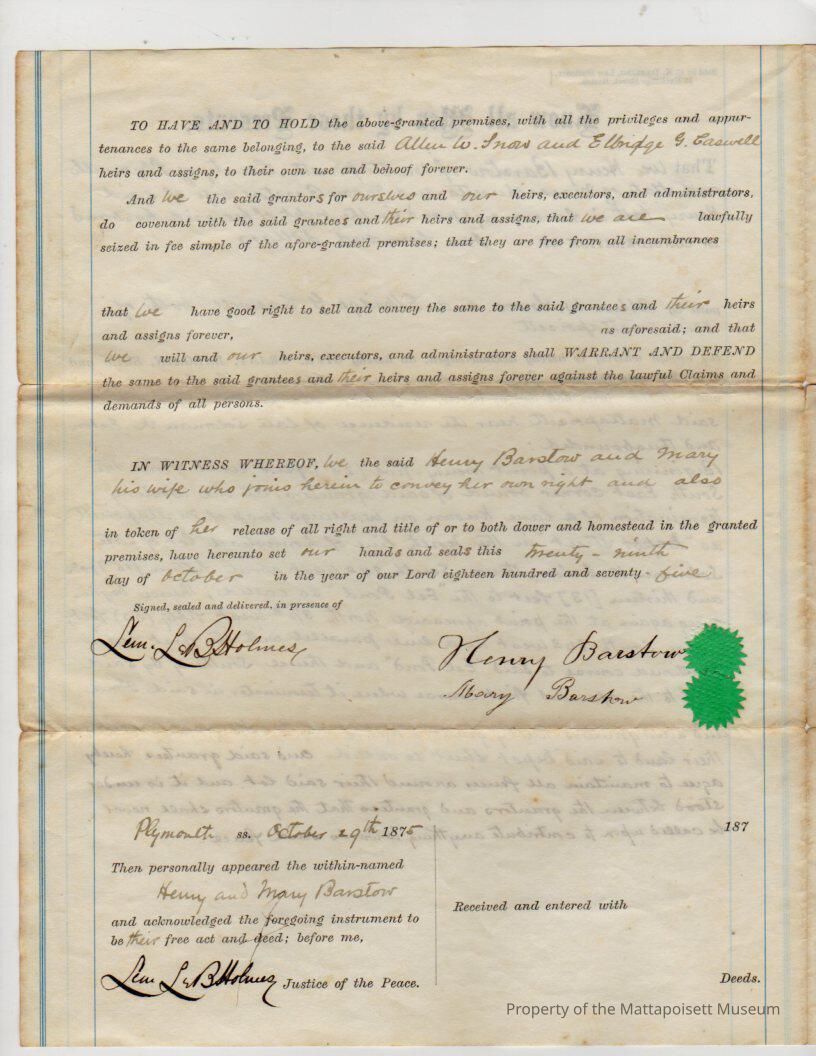 TO HAVE AND TO HOLD the above-granted premises, with all the privileges and appur-
tenances to the same belonging, to the said Allen W. Snow and Elbridge G. Caswell
heirs and assigns, to their own use and behoof forever.
And we the said grantors for ourselves and our heirs, executors, and administrators,
do covenant with the said grantees and their heirs and assigns, that we are lawfully
seized in fee simple of the afore-granted premises; that they are free from all incumbrances
that we have good right to sell and convey the same to the said grantees and their heirs
and assigns forever, as aforesaid; and that
we will and our heirs, executors, and administrators shall WARRANT AND DEFEND
the same to the said grantees and their heirs and assigns forever against the lawful Claims and
demands of all persons.
IN WITNESS WHEREOF, we the said Henry Barstow and Mary
his wife who joins herein to convey her own right and also
in token of her release of all right and title of or to both dower and homestead in the granted
premises, have hereunto set our hands and seals this twenty-ninth
day of October in the year of our Lord eighteen hundred and seventy-five
Signed, sealed and delivered, in presence of
Lem. LeB Holmes
Henry Barstow
Mary Barstow
Plymouth ss. October 29th 1875
Then personally appeared the within-named
Henry and Mary Barstow
and acknowledged the foregoing instrument to
be their free act and deed; before me,
Lem LeB Holmes Justice of the Peace.
187
Received and entered with
Deeds.
Property of the Mattapoisett Museum